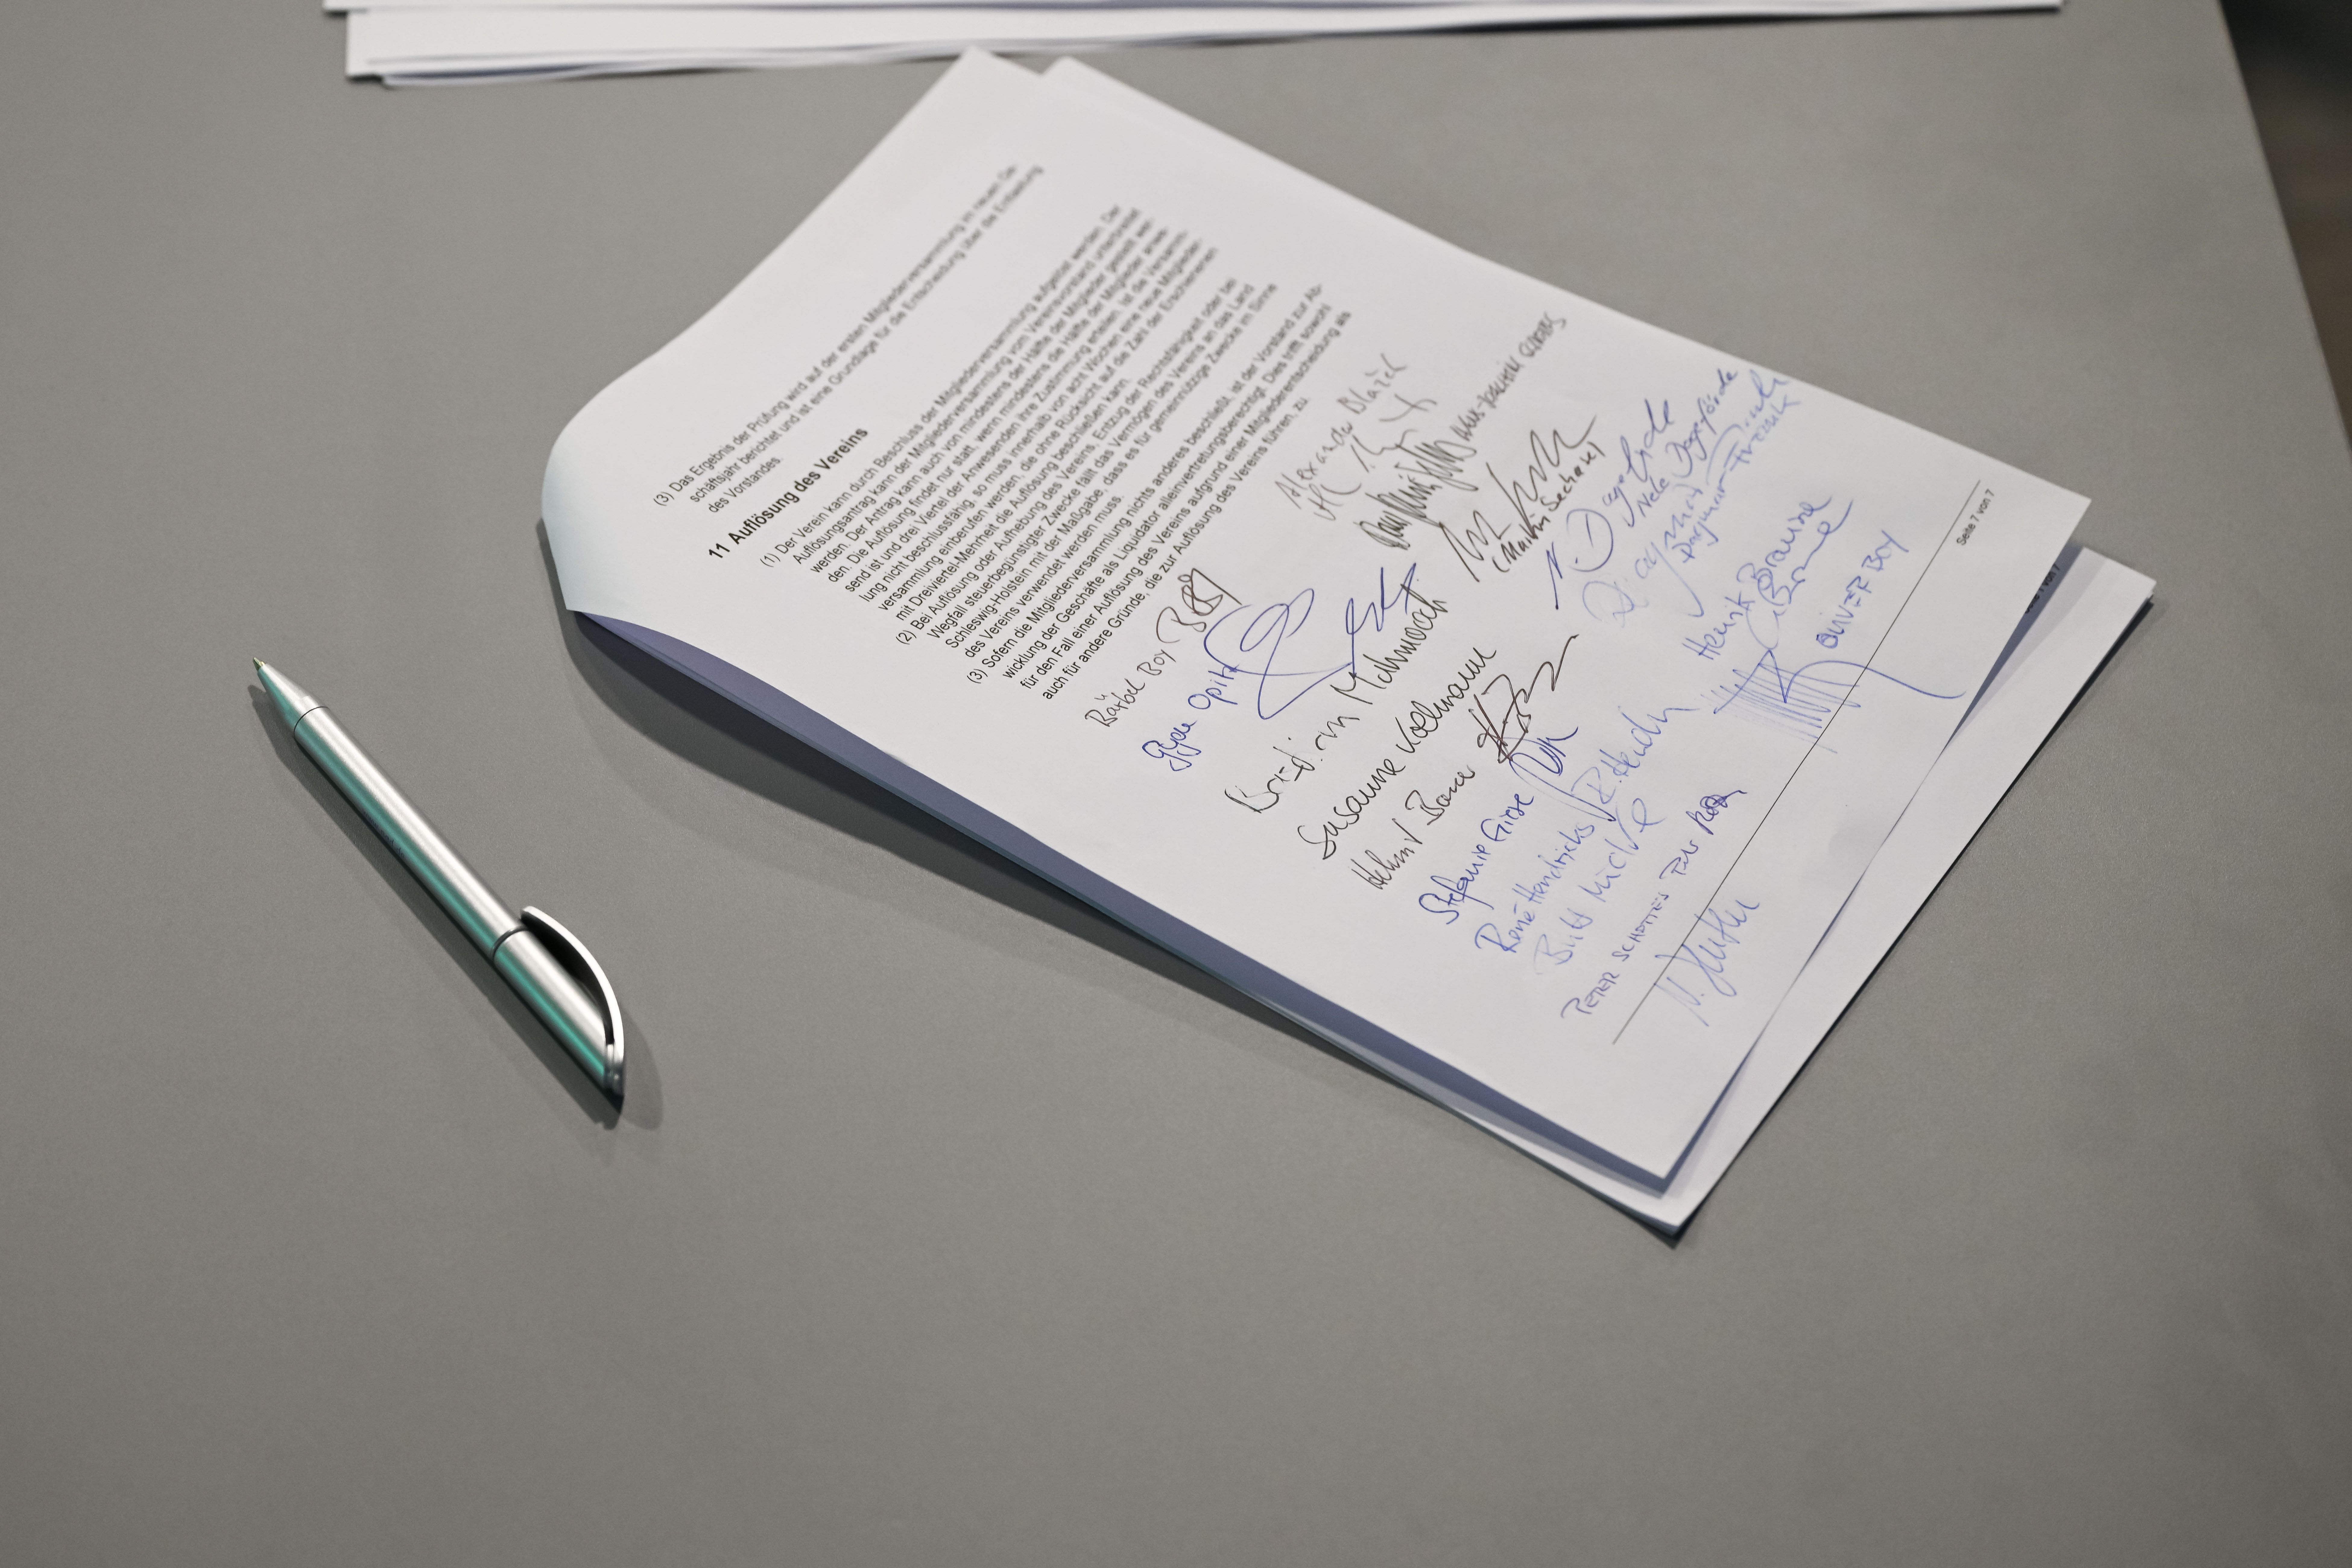 (3) Das Ergebnis der Prüfung wird auf der ersten Mitgliederversammlung im neuen Ge-
schäftsjahr berichtet und ist eine Grundlage für die Entscheidung über die Entlastung
des Vorstandes.
11 Auflösung des Vereins
(1) Der Verein kann durch Beschluss der Mitgliederversammlung aufgelöst werden. Der
Auflösungsantrag kann der Mitgliederversammlung vom Vereinsvorstand unterbreitet
werden. Der Antrag kann auch von mindestens der Hälfte der Mitglieder gestellt wer-
den. Die Auflösung findet nur statt, wenn mindestens die Hälfte der Mitglieder anwe-
send ist und drei Viertel der Anwesenden ihre Zustimmung erteilen. Ist die Versamm-
lung nicht beschlussfähig, so muss innerhalb von acht Wochen eine neue Mitglieder-
versammlung einberufen werden, die ohne Rücksicht auf die Zahl der Erschienenen
mit Dreiviertel-Mehrheit die Auflösung beschließen kann.
(2) Bei Auflösung oder Aufhebung des Vereins, Entzug der Rechtsfähigkeit oder bei
Wegfall steuerbegünstigter Zwecke fällt das Vermögen des Vereins an das Land
Schleswig-Holstein mit der Maßgabe, dass es für gemeinnützige Zwecke im Sinne
des Vereins verwendet werden muss.
(3) Sofern die Mitgliederversammlung nichts anderes beschließt, ist der Vorstand zur Ab-
wicklung der Geschäfte als Liquidator alleinvertretungsberechtigt. Dies trifft sowohl
für den Fall einer Auflösung des Vereins aufgrund einer Mitgliederentscheidung als
auch für andere Gründe, die zur Auflösung des Vereins führen, zu.
Bärbel Boy
Alexander Blažek
Opitz
(Martin Sechatz)
Susanne Kollmann
Nele Degeförde
Dagmar
Stefanie Giese
Henrik Brauns
René Hendricks R. Hendri
OLIVER BOY
Britt Mielke
PETER SCHOTTES
Seite 7 von 7